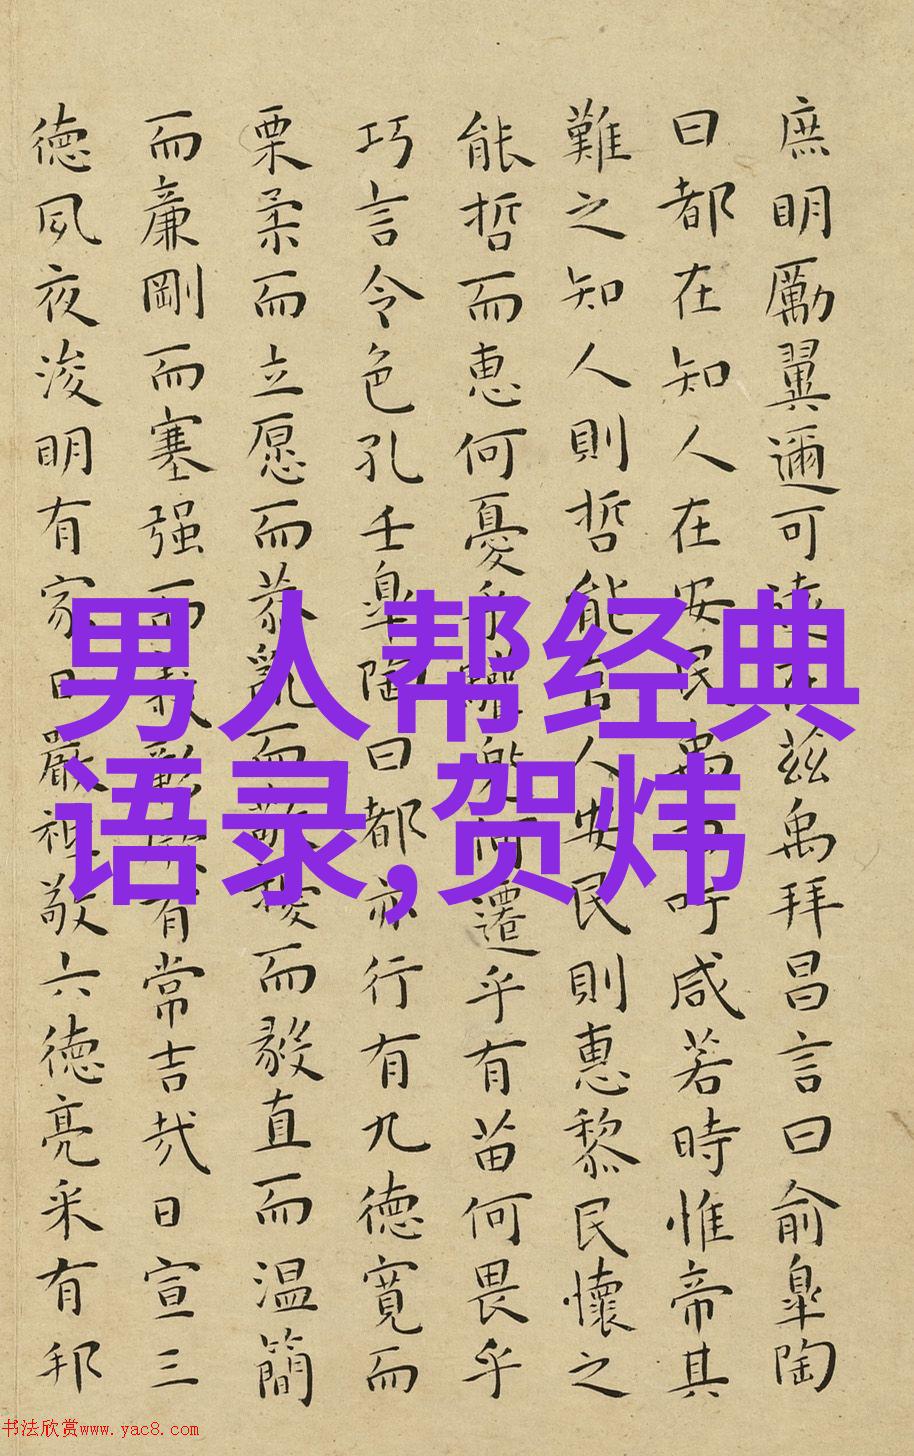 庶明勵翼邇可遠在茲禹拜昌言曰俞皐陶
曰都在知人在安民禹曰吁咸若時惟帝其
難之知人則哲能官人安民則惠黎民懷之
能哲而惠何憂乎驩兜何遷乎有苗何畏乎
巧言令色孔壬皐陶曰都亦行有九德寬而
栗柔而立愿而恭亂而敬擾而毅直而温簡
而廉剛而塞强而義彰厥有常吉哉日宣三
德夙夜浚明有家日嚴祗敬六德亮采有邦
男人帮经典
语录,贺炜
书法欣赏www.yac8.com